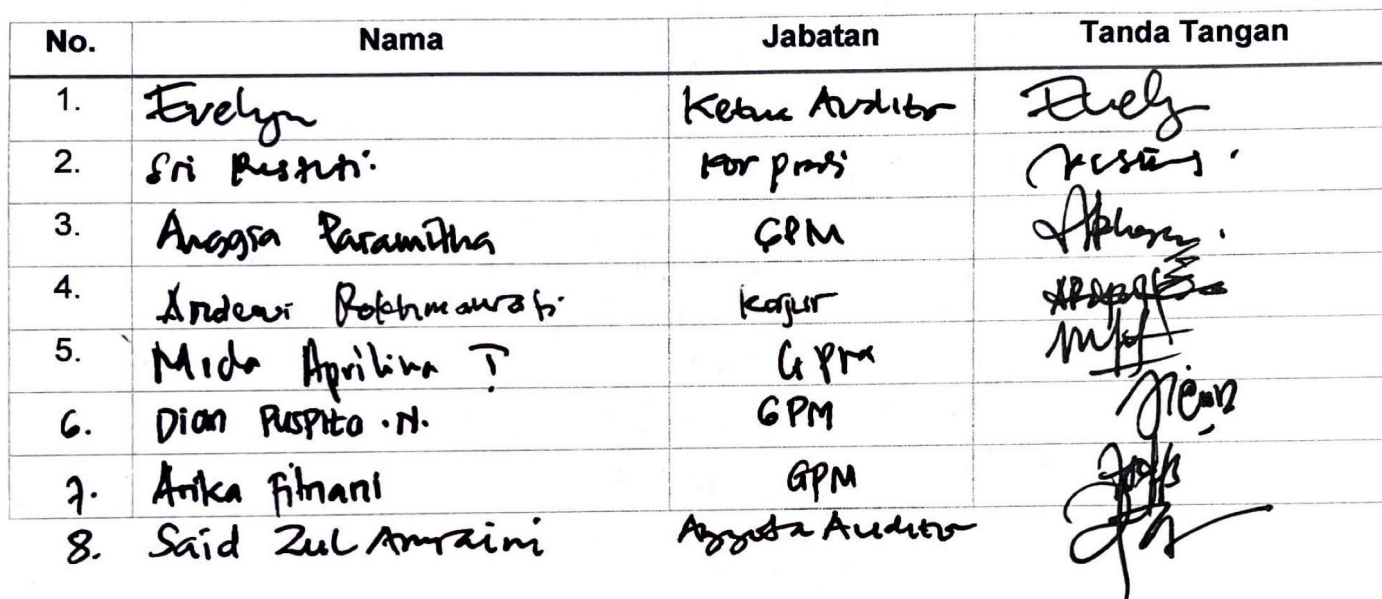 No. Nama Jabatan Tanda Tangan
1. Evelyn Ketua Auditor Evely
2. Sri Restuti. Kor prodi
3. Anggia Paramitha GPM
4. Andewi Rokhmawati Kajur
5. Mida Aprilina T GPM
6. Dian Puspita .N. GPM
7. Arika Fitriani GPM
8. Said Zul Amraini Anggota Auditor